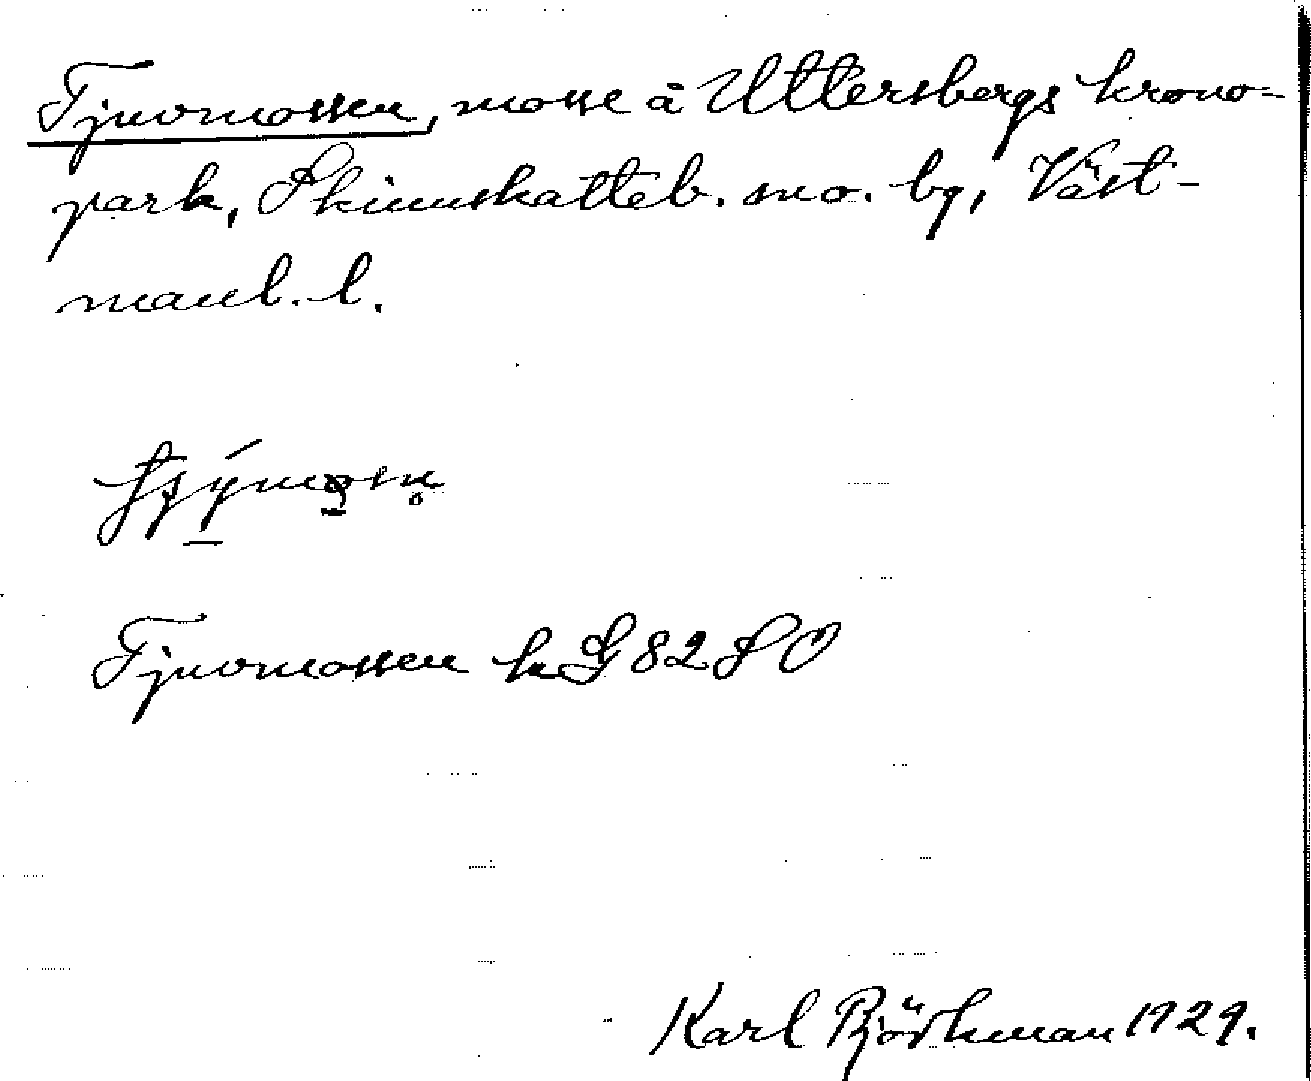 Tjuvmossen, mosse å Uttersbergs krono-
park, Skinnskatteb. sn o. by, Väst-
manl. l.
Tjuvmossen k G 82 S O
Karl Björkman 1929.